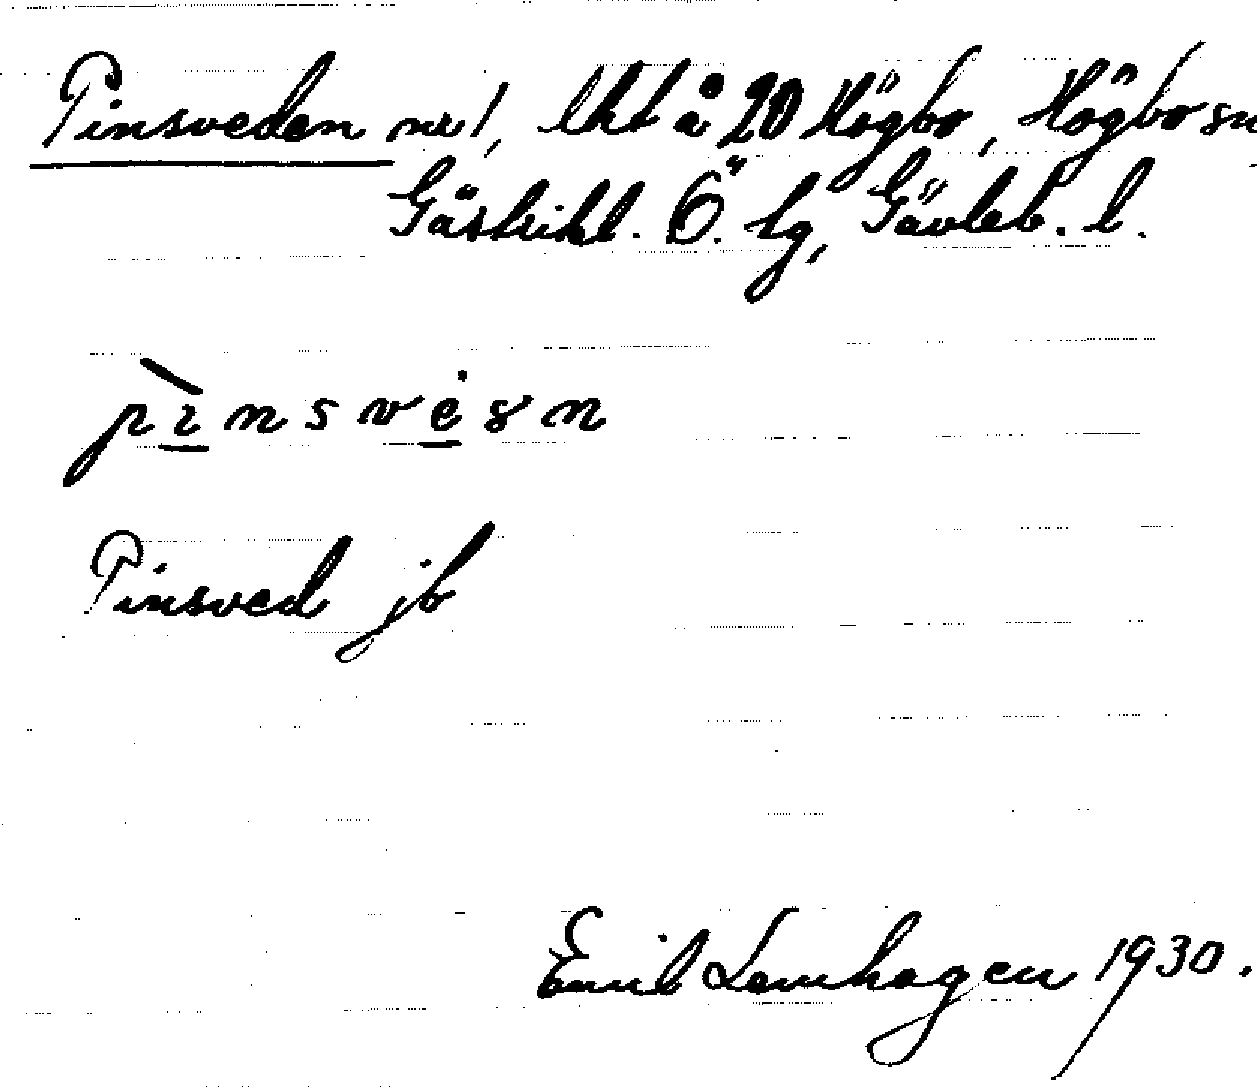 Pinsveden nr 1, lht å 20 Högbo, Högbo sn
Gästrikl. Ö. tg, Gävleb. l.
pìnsvėsn
Pinsved jb
Emil Lemhagen 1930.